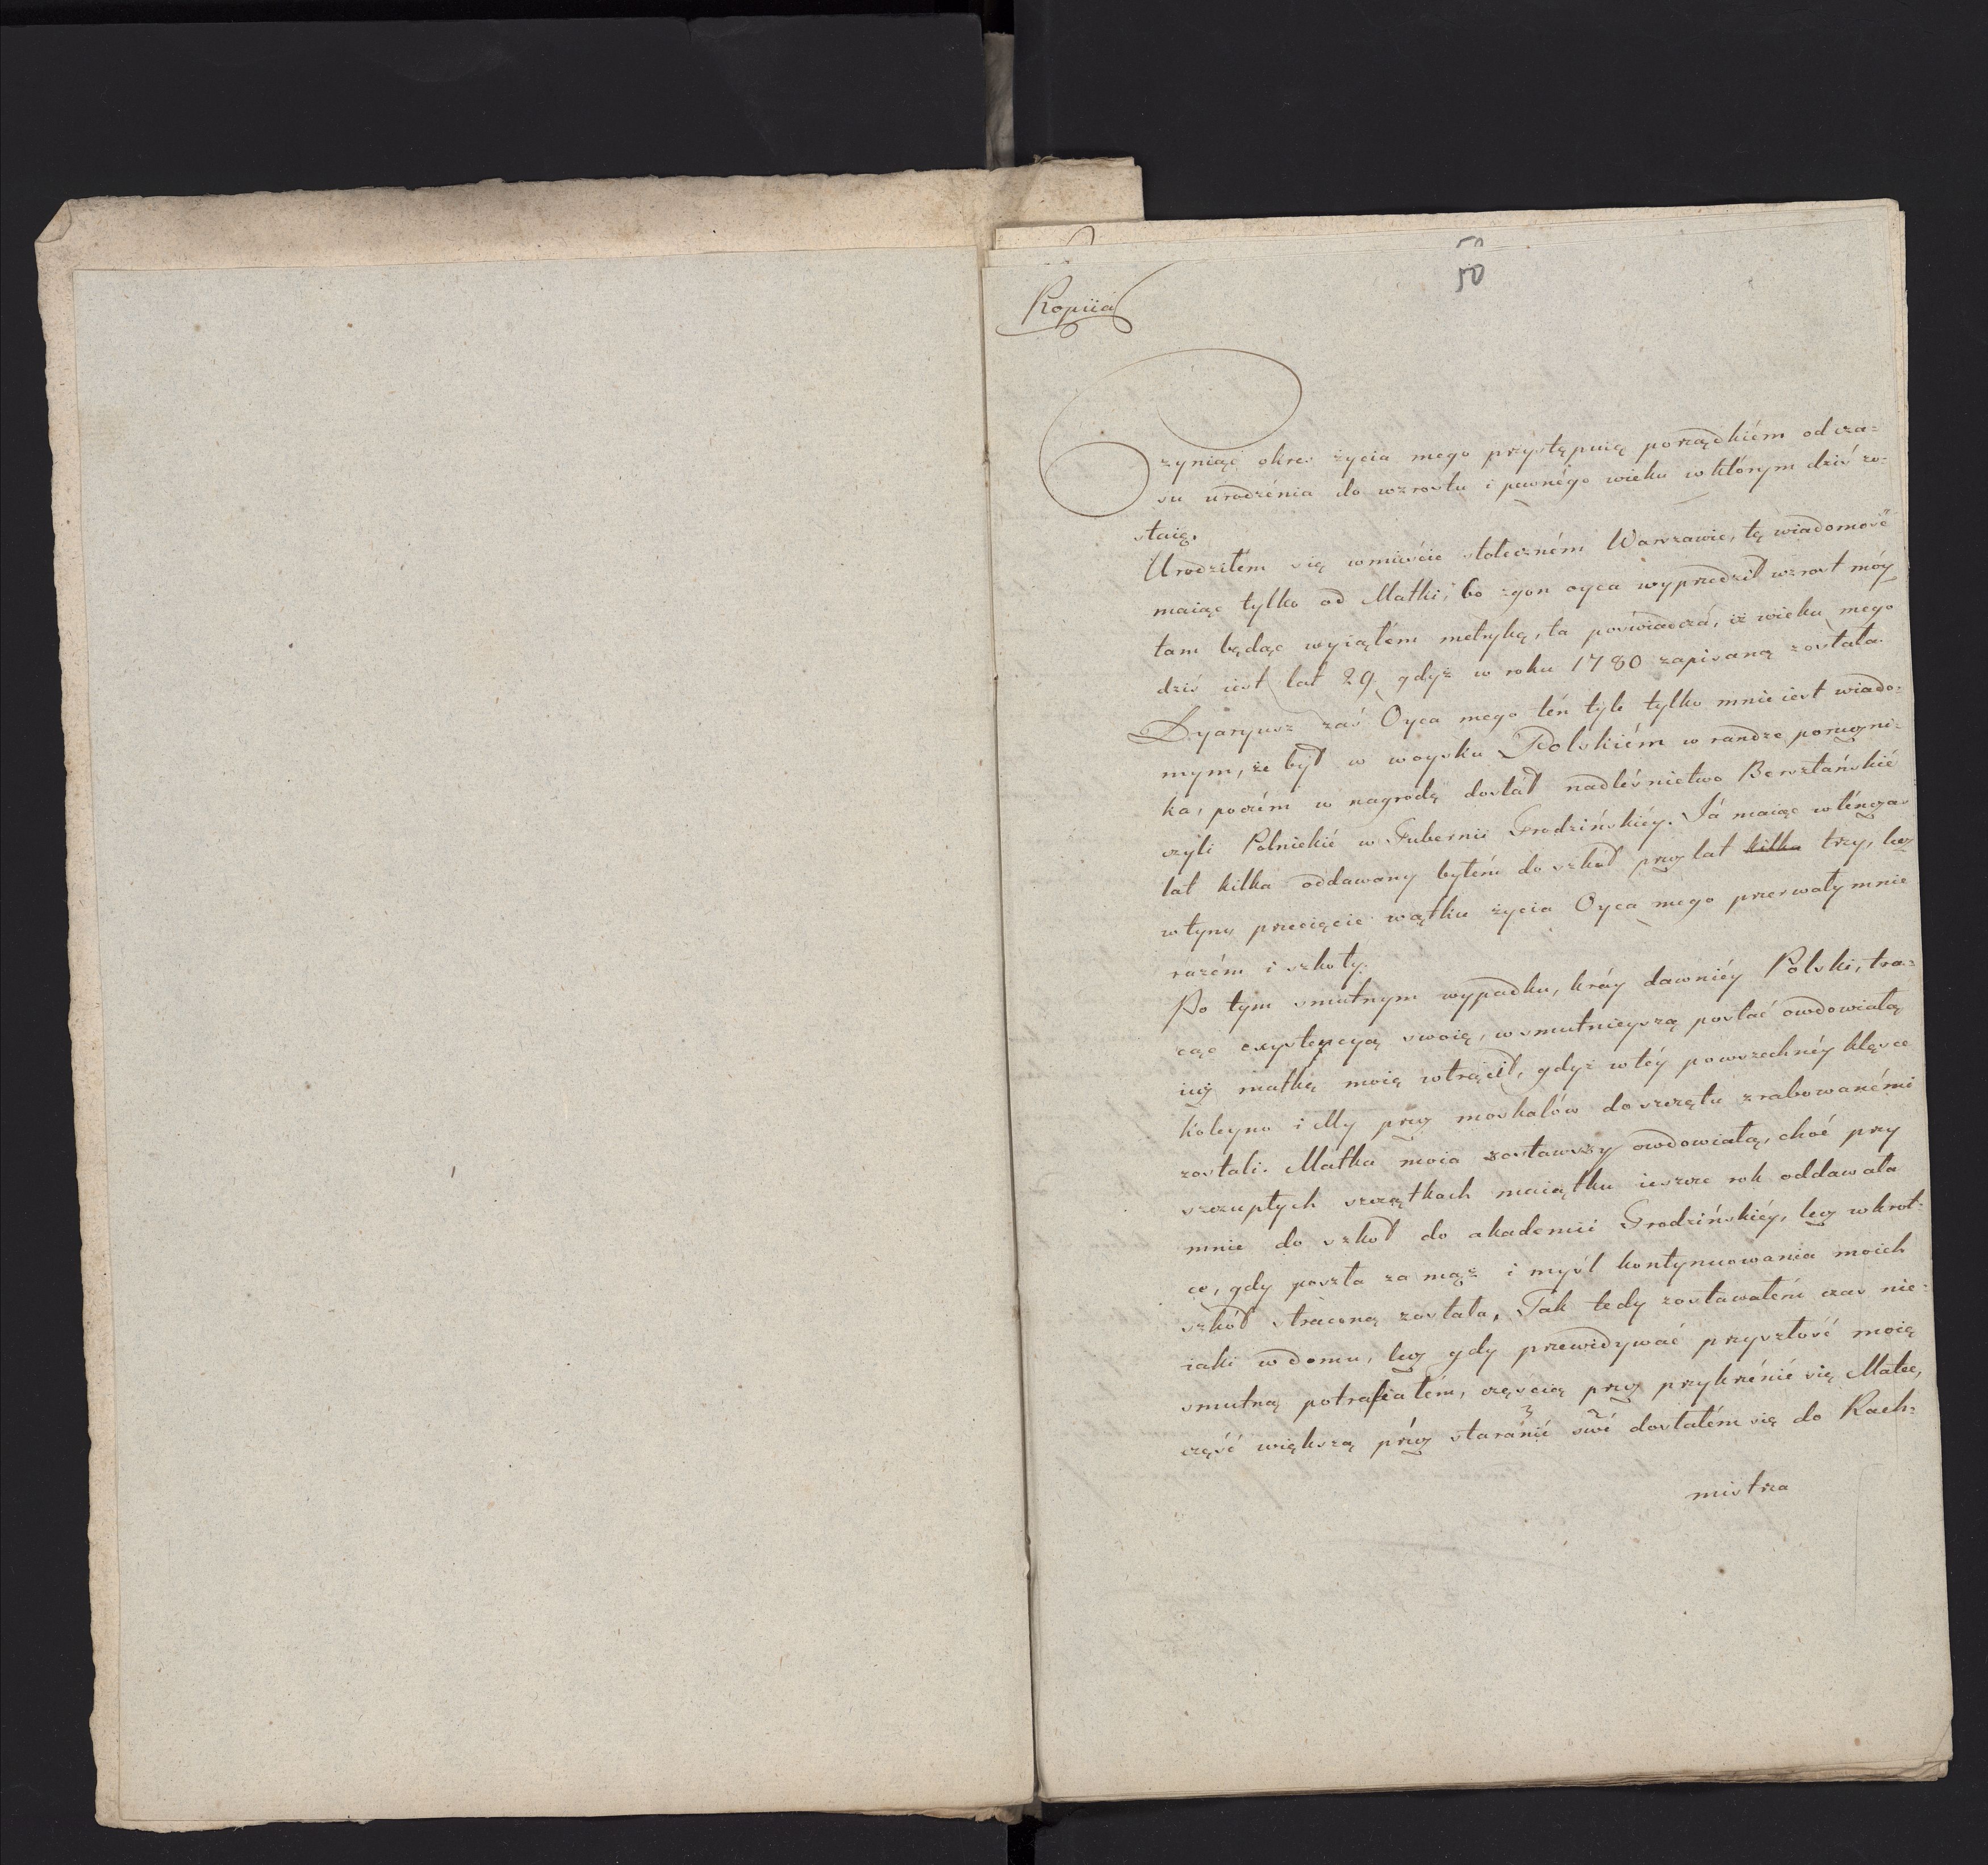 50
Kopiia
Czyniąc okres życia mego przystępuię porządkiém od cza=
su urodzénia do wzrostu i pewnégo wieku w którym dziś zo=
staię.
Urodziłem się w mieście stołeczném Warszawie, tę wiadomość
maiąc tylko od Matki, bo zgon oyca wyprzedził wzrost móy
tam będąc wyiąłém metrykę, ta poświadczá, iż wieku mego
dziś iest lat 29. gdyż w roku 1780 zapisaną została.
Dyaryusz zaś Oyca mego tén tyle tylko mnie iest wiado=
mym, że był w woysku Polskiém w randze poruczni=
ka, poczém w nagrodę dostał nadleśnictwo Bersztańskié
czyli Polnickié w Gubernii Grodzińskiéy. Já maiąc wténczas
lat kilka oddawany byłém do szkół przez lat kilka trzy, lecz
w tym przecięcie wątku życia Oyca mego przerwały mnie
razém i szkoły.
Po tym smutnym wypadku, kráy dawniéy Polski, tra=
cąc exystencyą swoią, w smutnieyszą postać owdowiałą
iuż matkę moię wtrącił, gdyż w téy powszechnéy klęsce
koleyno i My przez moskalów do szczętu zrabowanémi
zostali. Matka moia zostawszy owdowiałą, choć przy
szczupłych szczątkach maiątku ieszcze rok oddawała
mnie do szkół do akademii Grodzińskiéy, lecz wkrót=
ce, gdy poszła za mąż i myśl kontynuowania moich
szkół straconą została. Tak tedy zostawałém czas nie=
iaki w domu, lecz gdy przewidywać przyszłość moię
smutną potrafiałém, częścią przez przykrzénié się Matce,
część większą przez staránié 3 swé 2 dostałém się do Rach=
mistrza